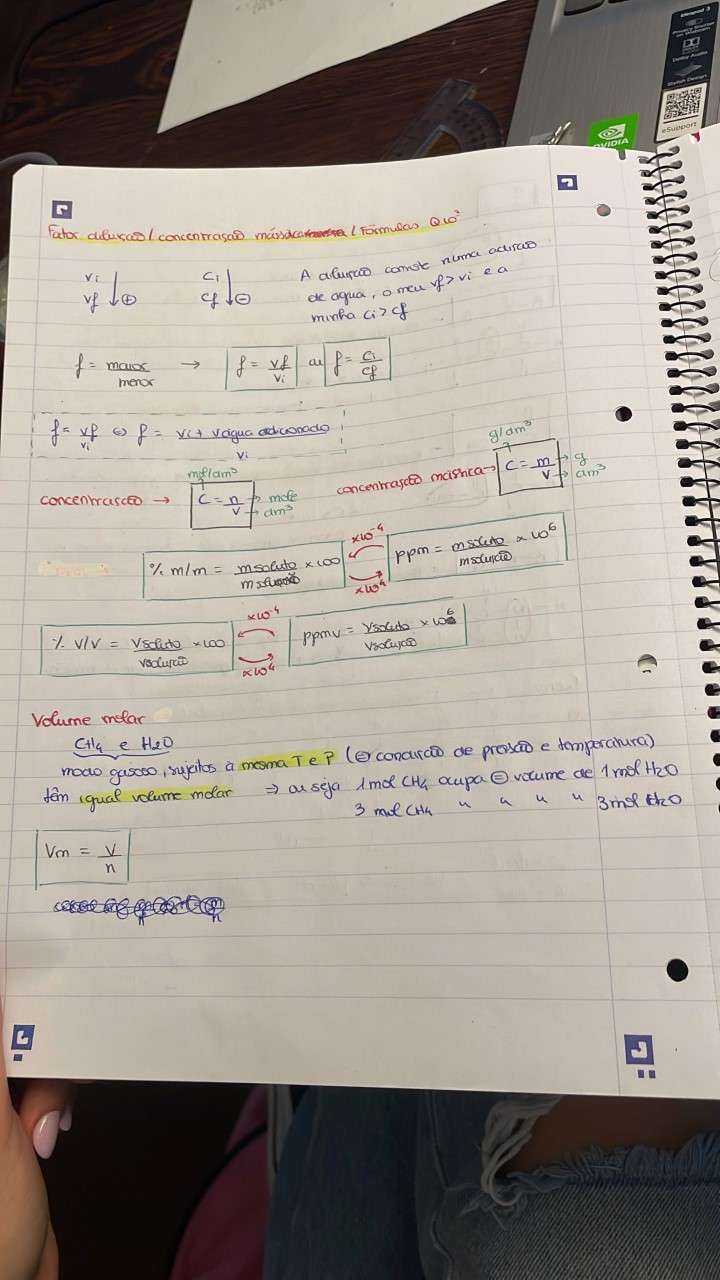 ideapad 3
Privacy Shutter
on Webcam
Dolby Audio
Stylish Design
eSupport
NVIDIA
Fator diluição / concentração mássica / Fórmulas 10º
Vi
Vf ⊕
Ci
Cf ⊖
A diluição consiste numa adição
de água, o meu Vf > Vi e a
minha Ci > Cf
f = maior/menor → f = Vf/Vi ou f = Ci/Cf
f = Vf/Vi ⇔ f = Vi + V água adicionado/Vi
mol/dm³
concentração → C = n/V → mole → dm³
g/dm³
concentração mássica → C = m/V → g → dm³
% m/m = m soluto/m solução × 100
×10⁻⁴
×10⁴
ppm = m soluto/m solução × 10⁶
% V/V = V soluto/V solução × 100
×10⁻⁴
×10⁴
ppmv = V soluto/V solução × 10⁶
Volume molar
CH4 e H2O
modo gasoso, sujeitos à mesma T e P (⊖ condição de pressão e temperatura)
têm igual volume molar ⇒ ou seja 1 mol CH4 ocupa ⊖ volume de 1 mol H2O
3 mol CH4 " " " " 3 mol H2O
Vm = V/n